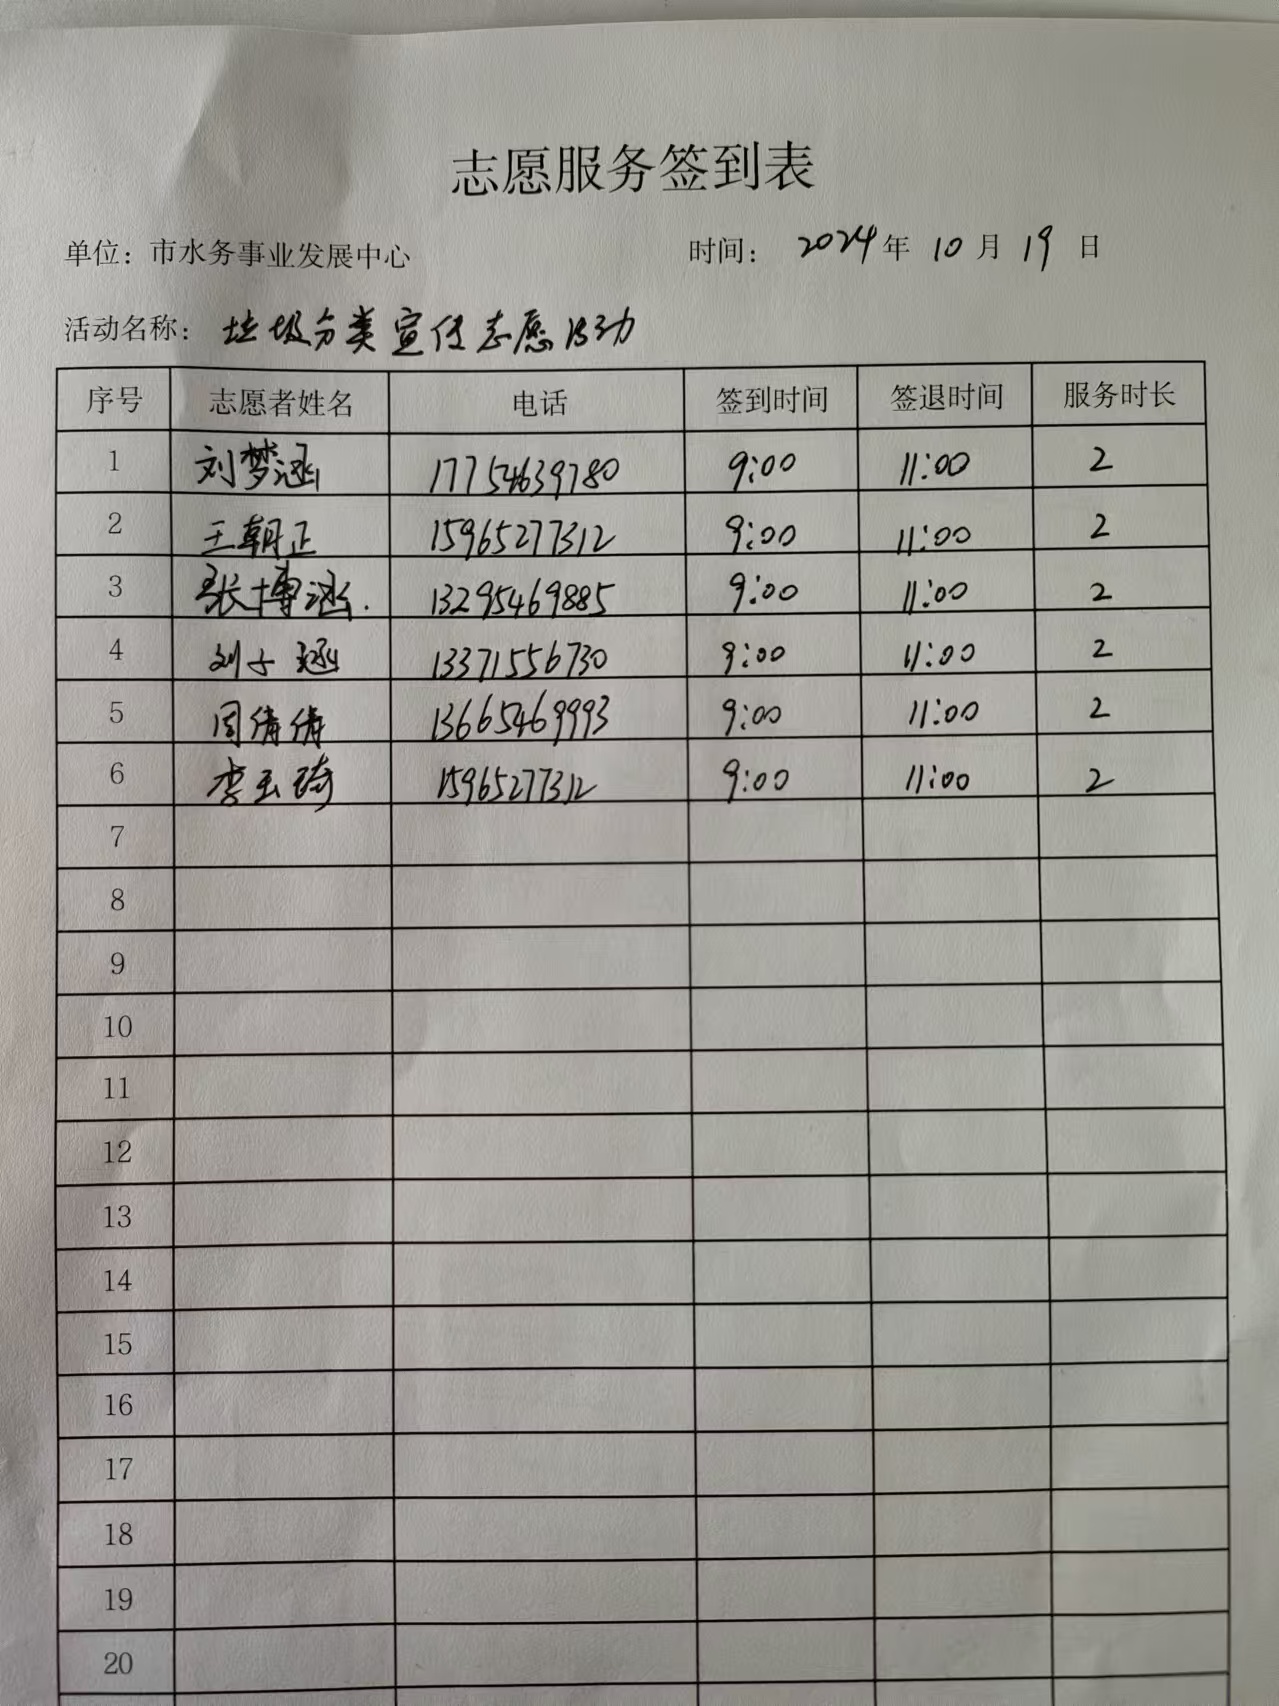 志愿服务签到表
单位：市水务事业发展中心 时间： 2024 年 10 月 19 日
活动名称： 垃圾分类宣传志愿活动
序号 志愿者姓名 电话 签到时间 签退时间 服务时长
1 刘梦涵 17754639780 9:00 11:00 2
2 王朝正 15965277312 9:00 11:00 2
3 张博涵. 13295469885 9:00 11:00 2
4 刘子涵 13371556730 9:00 11:00 2
5 周倩倩 13665469993 9:00 11:00 2
6 李玉琦 15965277312 9:00 11:00 2
7
8
9
10
11
12
13
14
15
16
17
18
19
20